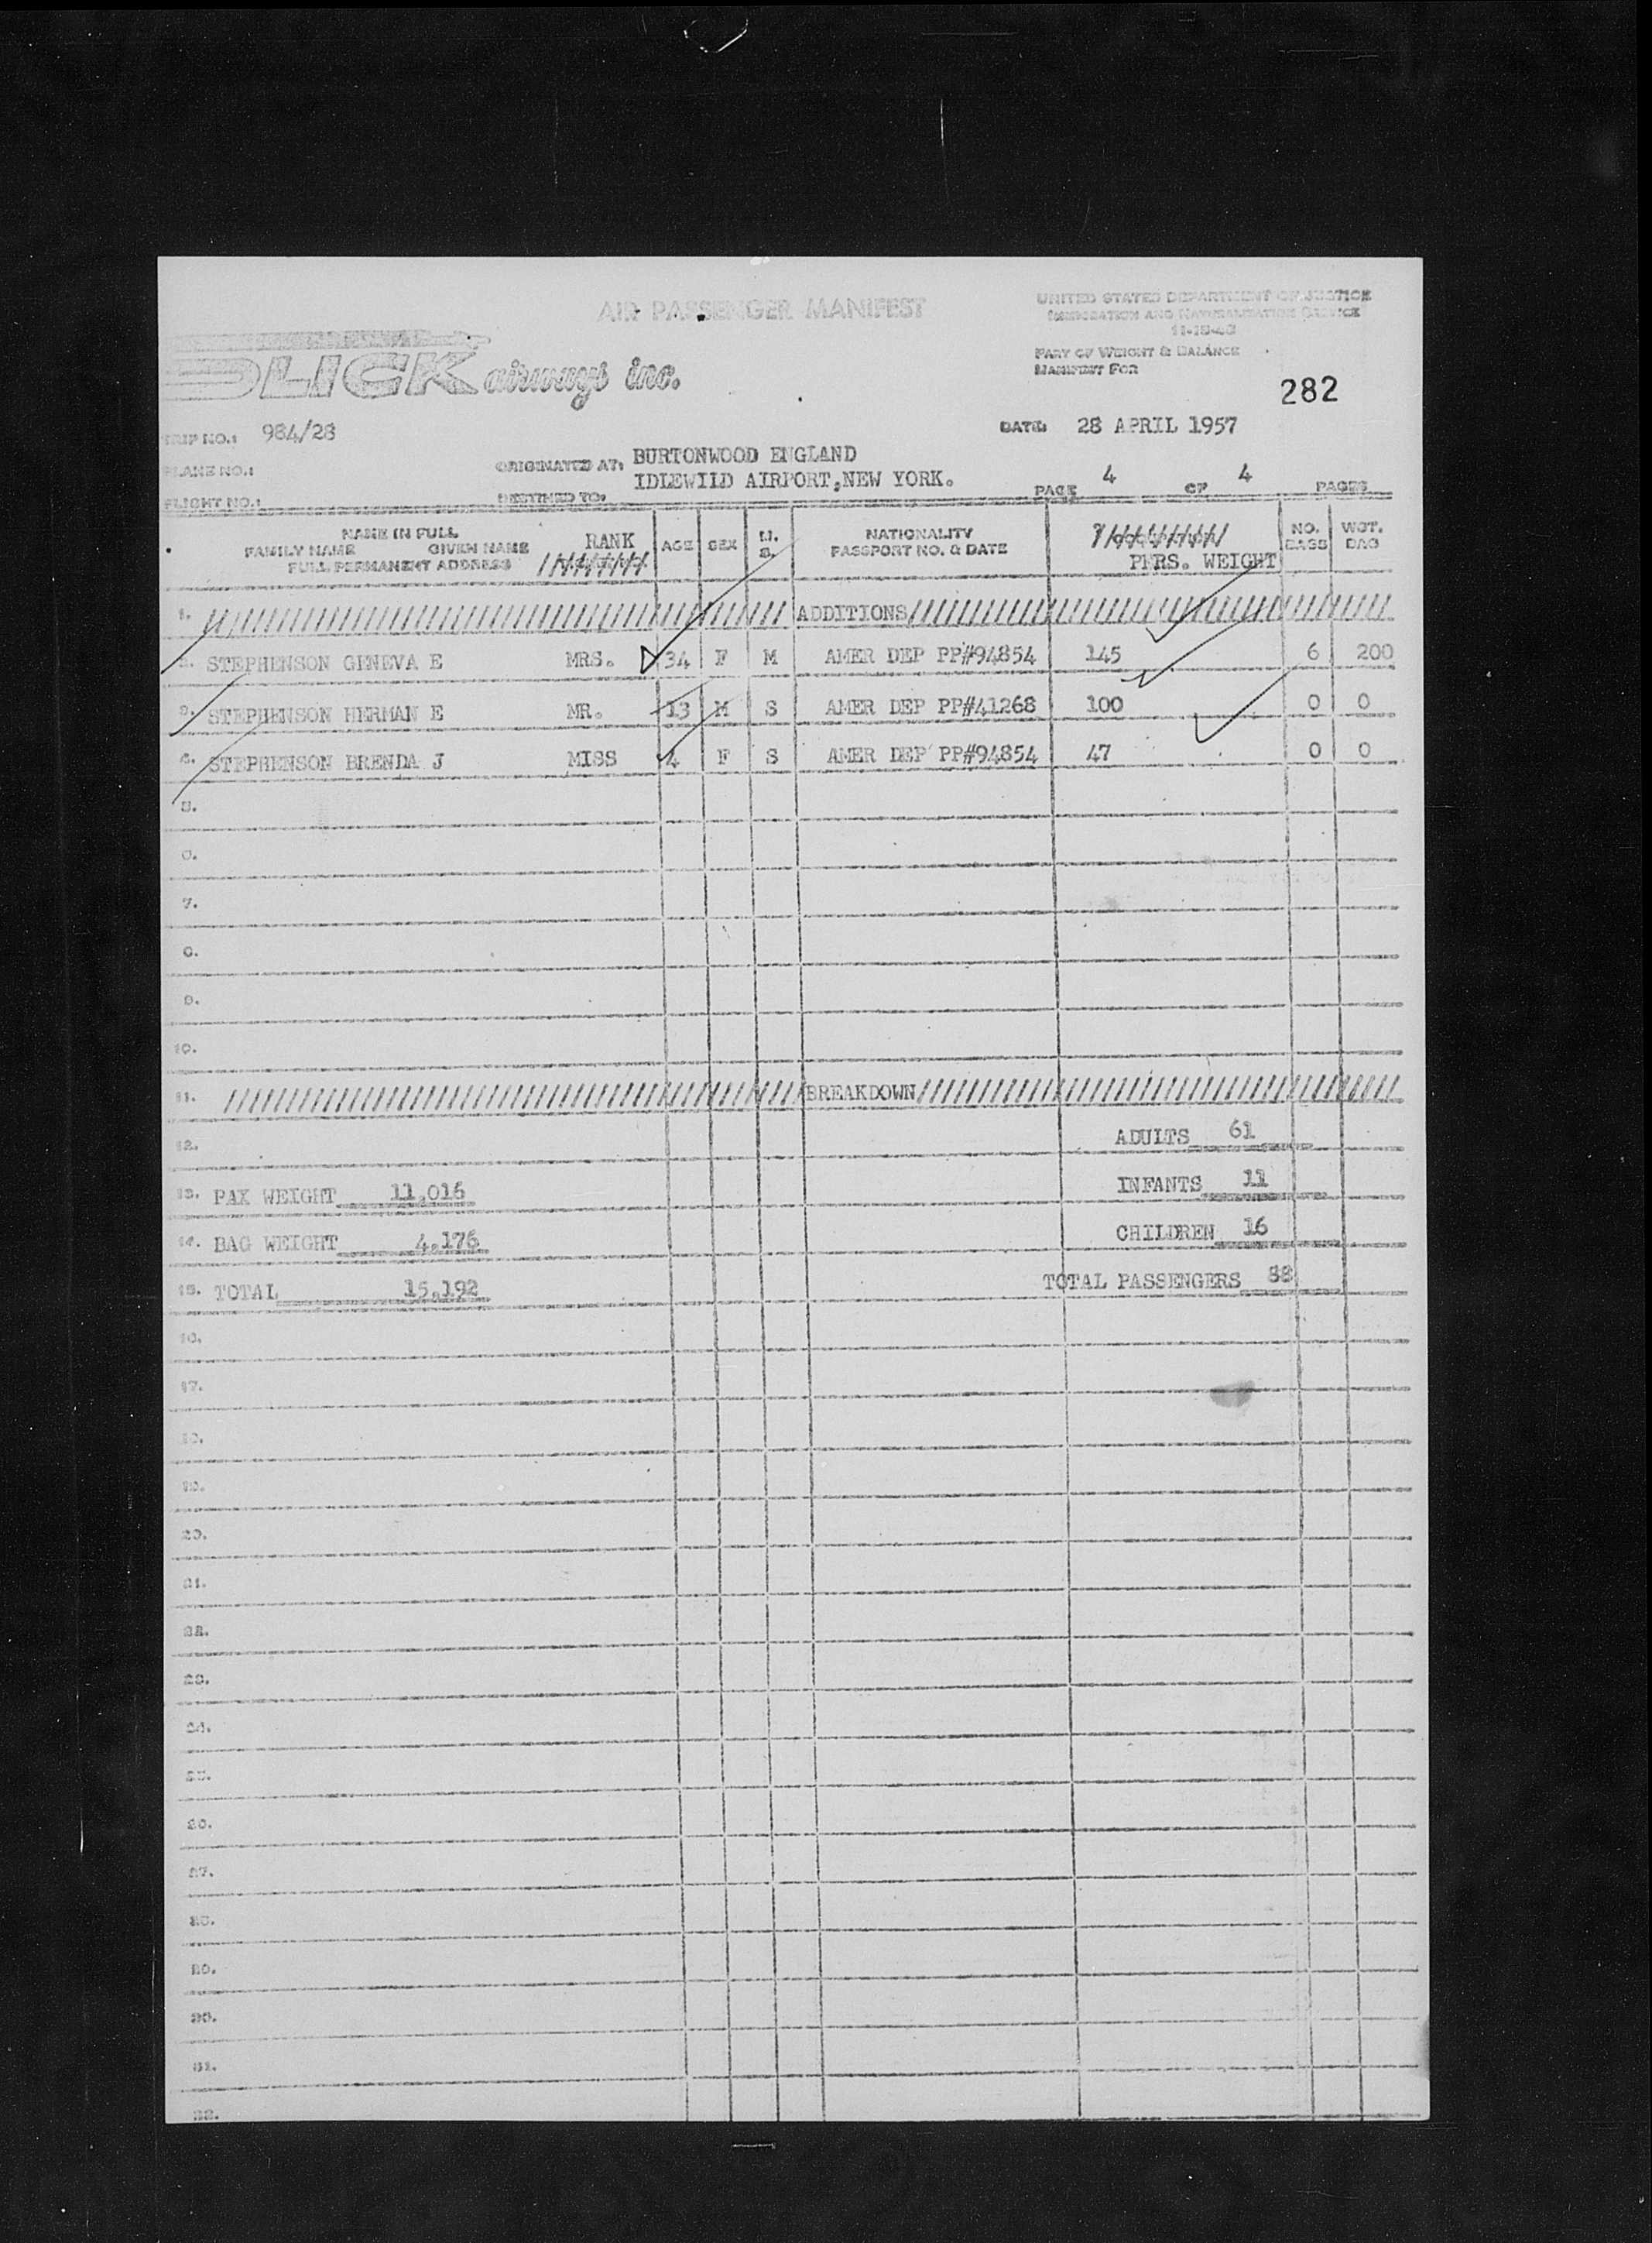 AIR PASSENGER MANIFEST
UNITED STATES DEPARTMENT OF JUSTICE
IMMIGRATION AND NATURALIZATION SERVICE
PART OF WEIGHT & BALANCE
MANIFEST FOR
SLICK airways inc.
282
TRIP NO.: 984/28
DATE: 28 APRIL 1957
PLANE NO.:
ORIGINATED AT: BURTONWOOD ENGLAND
FLIGHT NO.:
DESTINED TO: IDLEWILD AIRPORT, NEW YORK.
PAGE 4 OF 4 PAGES
NAME IN FULL
FAMILY NAME GIVEN NAME RANK AGE SEX M. S. NATIONALITY PASSPORT NO. & DATE PERS. WEIGHT NO. BAGS WGT. BAG
FULL PERMANENT ADDRESS
1. ADDITIONS
2. STEPHENSON GENEVA E MRS. 34 F M AMER DEP PP#94854 145 6 200
3. STEPHENSON HERMAN E MR. 13 M S AMER DEP PP#41268 100 0 0
4. STEPHENSON BRENDA J MISS 4 F S AMER DEP PP#94854 47 0 0
5.
6.
7.
8.
9.
10.
11. BREAKDOWN
12. ADULTS 61
13. PAX WEIGHT 11,016 INFANTS 11
14. BAG WEIGHT 4,176 CHILDREN 16
15. TOTAL 15,192 TOTAL PASSENGERS 88
16.
17.
18.
19.
20.
21.
22.
23.
24.
25.
26.
27.
28.
29.
30.
31.
32.